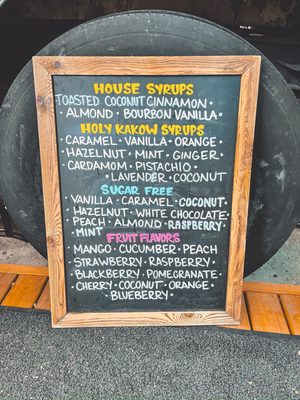 HOUSE SYRUPS
TOASTED COCONUT CINNAMON •
ALMOND • BOURBON VANILLA •
HOLY KAKOW SYRUPS
CARAMEL • VANILLA • ORANGE •
HAZELNUT • MINT • GINGER •
CARDAMOM • PISTACHIO •
• LAVENDER • COCONUT
SUGAR FREE
• VANILLA • CARAMEL • COCONUT •
HAZELNUT • WHITE CHOCOLATE •
• PEACH • ALMOND • RASPBERRY •
• MINT
FRUIT FLAVORS
MANGO • CUCUMBER • PEACH
STRAWBERRY • RASPBERRY •
BLACKBERRY • POMEGRANATE •
CHERRY • COCONUT • ORANGE •
• BLUEBERRY •